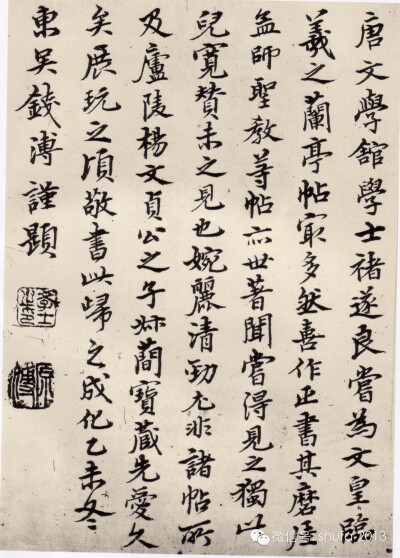 唐文學舘學士褚遂良嘗為文皇臨
羲之蘭亭帖冣多然善作正書其磨崖
孟師聖教等帖亦世著聞嘗得見之獨此
兒寬賛未之見也婉麗清勁尤非諸帖所
及廬陵楊文貞公之子叔蕳寶藏先愛久
矣展玩之頃敬書此歸之成化乙未冬
東吳錢溥謹題
微信号: shufa-2013